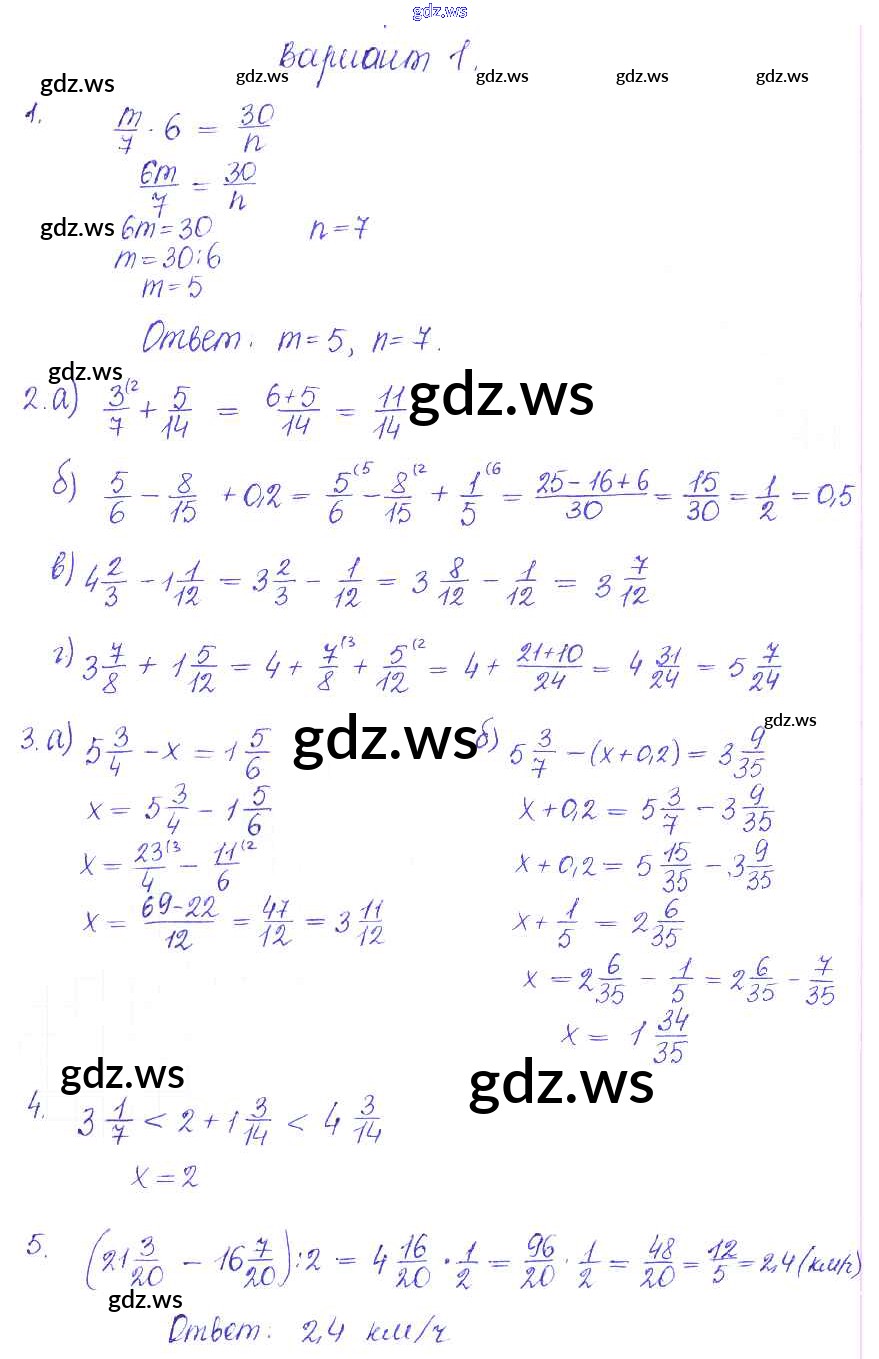 gdz.ws
Вариант 1.
gdz.ws gdz.ws gdz.ws gdz.ws gdz.ws
1. m/7 · 6 = 30/n
6m/7 = 30/n
gdz.ws 6m=30 n=7
m=30:6
m=5
Ответ: m=5, n=7.
gdz.ws
2.а) 3/7(2 + 5/14 = 6+5/14 = 11/14 gdz.ws
б) 5/6 - 8/15 + 0,2 = 5/6(5 - 8/15(2 + 1/5(6 = 25-16+6/30 = 15/30 = 1/2 = 0,5
в) 4 2/3 - 1 1/12 = 3 2/3 - 1/12 = 3 8/12 - 1/12 = 3 7/12
г) 3 7/8 + 1 5/12 = 4 + 7/8(3 + 5/12(2 = 4 + 21+10/24 = 4 31/24 = 5 7/24
gdz.ws
3.а) 5 3/4 - x = 1 5/6 gdz.ws б) 5 3/7 - (x+0,2) = 3 9/35
x = 5 3/4 - 1 5/6 x+0,2 = 5 3/7 - 3 9/35
x = 23/4(3 - 11/6(2 x+0,2 = 5 15/35 - 3 9/35
x = 69-22/12 = 47/12 = 3 11/12 x + 1/5 = 2 6/35
x = 2 6/35 - 1/5 = 2 6/35 - 7/35
x = 1 34/35
gdz.ws gdz.ws
4. 3 1/7 < 2 + 1 3/14 < 4 3/14
x = 2
5. (21 3/20 - 16 7/20):2 = 4 16/20 · 1/2 = 96/20 · 1/2 = 48/20 = 12/5 = 2,4 (км/ч)
gdz.ws
Ответ: 2,4 км/ч